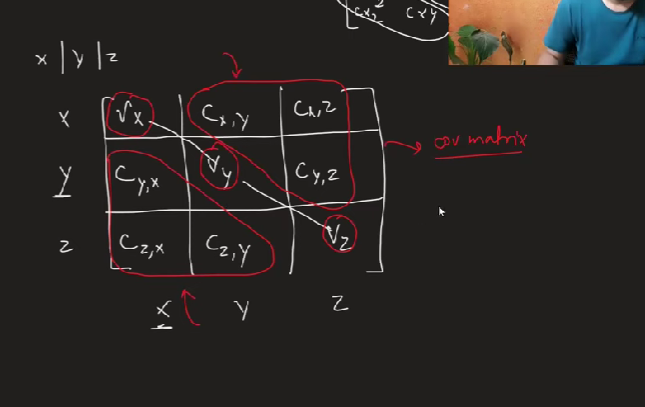 x | y | z
x Vx Cx,y Cx,z
y Cy,x Vy Cy,z
z Cz,x Cz,y Vz
x y z
cov matrix